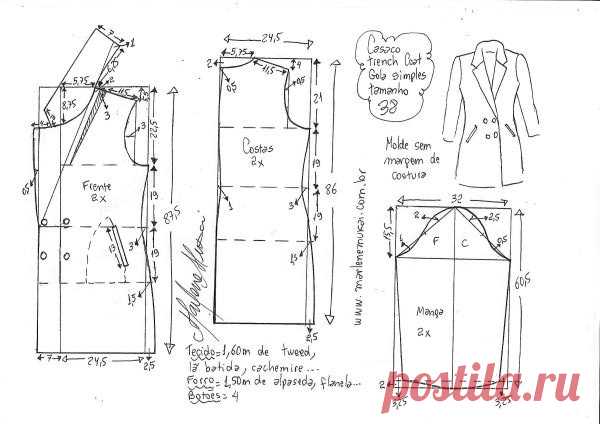 Casaco
trench Coat
Gola simples
tamanho
38
Molde sem
margem de
costura
Frente
2x
Costas
2x
Manga
2x
F
C
7
1
5,75
2
11,5
8,75
3
3
22,5
19
87,5
19
0,5
13
3
1,5
7
24,5
2,5
24,5
5,75
2
11,5
4
0,5
0,5
21
19
86
19
1
3
1,5
2,5
32
2
2,5
15,5
1
0,5
60,5
2
3,25
3,25
Marlene Mukai
www.marlenemukai.com.br
Tecido=1,60m de tweed,
lã batida, cachemire...
Forro=1,50m de alpaseda, flanela...
Botões=4
postila.ru